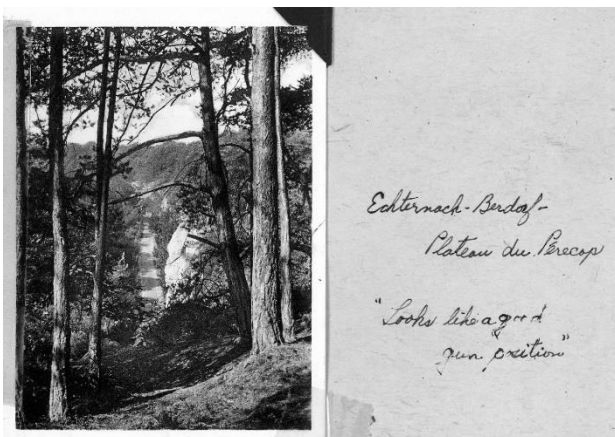 Echternach-Berdorf-
Plateau du Perecop
"Looks like a good
gun position"